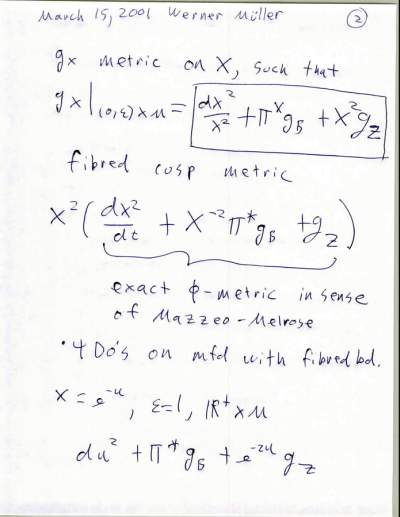 March 15, 2001 Werner Müller (2)
gx metric on X, such that
gx|(0,ε)×M = dx²/x² + π^x g_B + x² g_Z
fibred cusp metric
x²(dx²/dt + x⁻² π* g_B + g_Z)
exact φ-metric in sense
of Mazzeo-Melrose
· 4DO's on mfd with fibred bd.
x = e⁻ᵘ, ε=1, ℝ⁺ × M
du² + π* g_B + e⁻²ᵘ g_Z